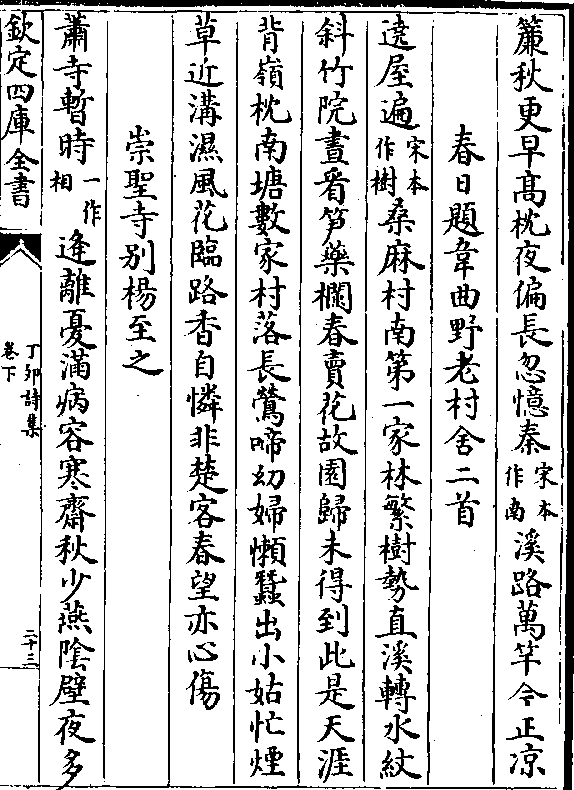 簾秋更早髙枕夜偏長忽憶秦宋本作南溪路萬竿今正凉
春日題韋曲野老村舍二首
遶屋遍宋本作樹桑麻村南第一家林繁樹勢直溪轉水紋
斜竹院晝看笋藥欄春賣花故園歸未得到此是天涯
背嶺枕南塘數家村落長鶯啼幼婦懶蠶出小姑忙煙
草近溝濕風花臨路香自憐非楚客春望亦心傷
崇聖寺别楊至之
蕭寺暫時一作相逢離憂滿病容寒齋秋少燕隂壁夜多
欽定四庫全書
丁卯詩集
卷下
二十三